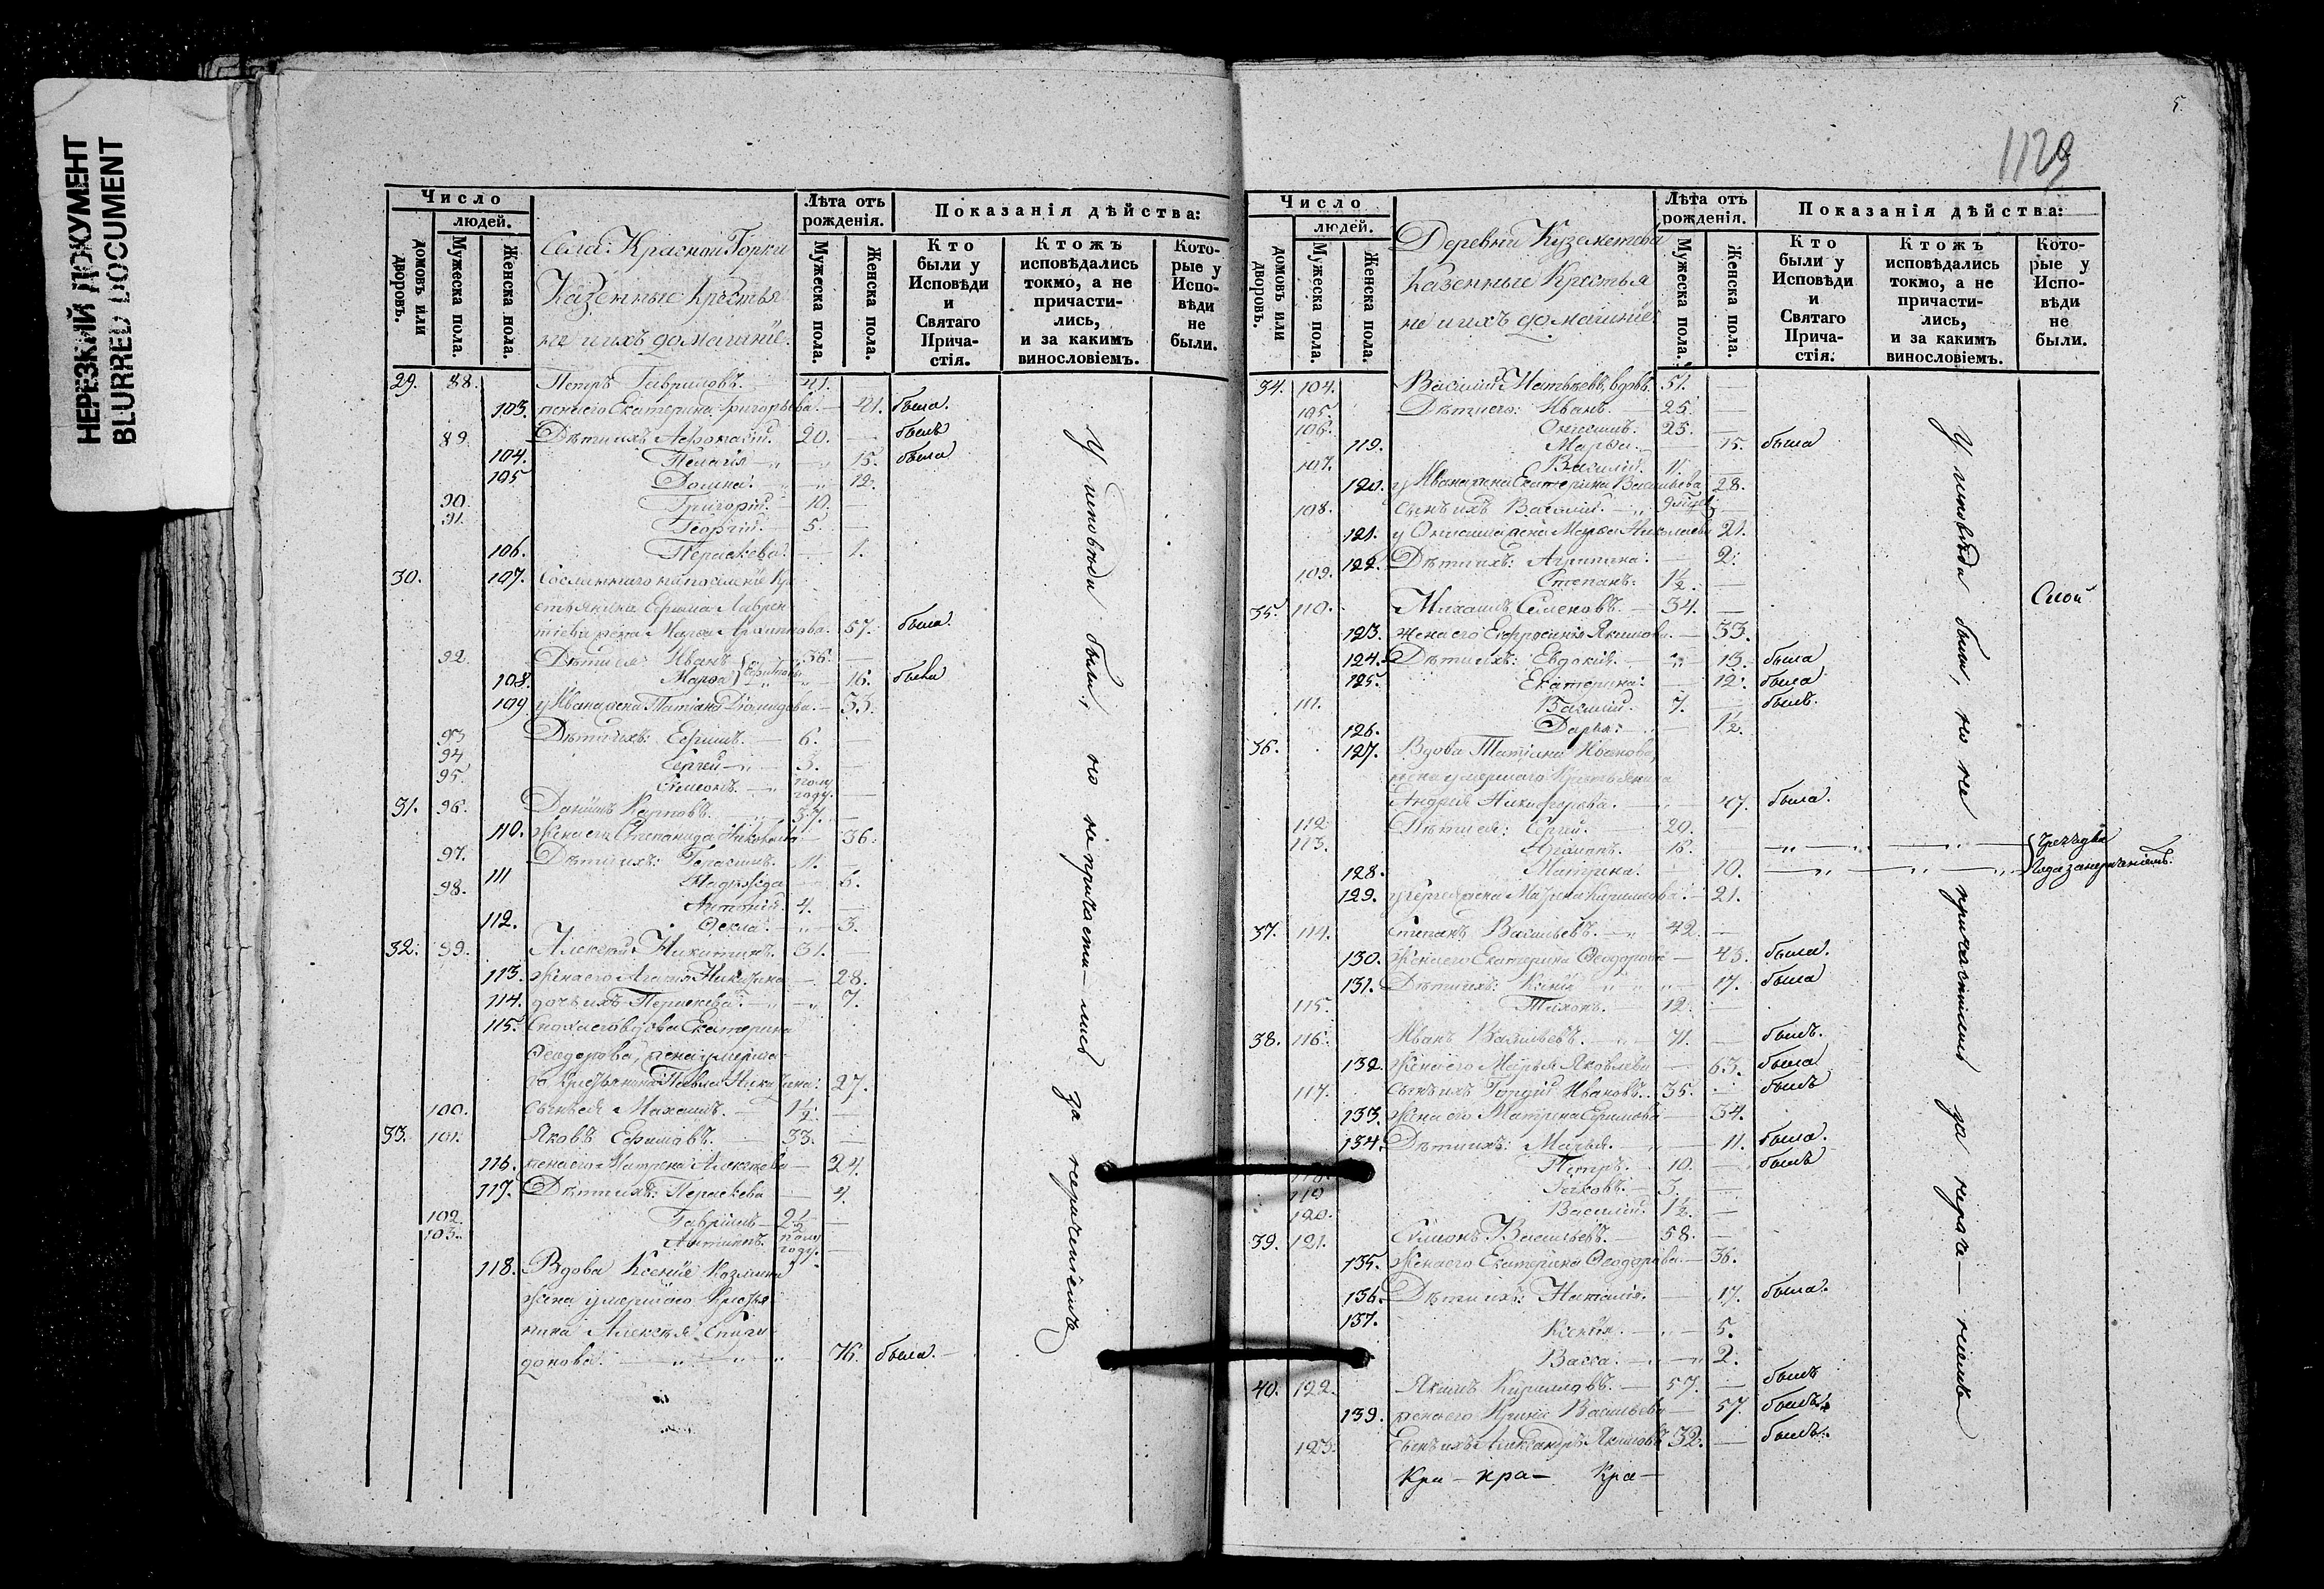 НЕРЕЗКИЙ ДОКУМЕНТ
BLURRED DOCUMENT
Число
людей.
домовъ или дворовъ.
Мужеска пола.
Женска пола.
Села: Красной Горки
Казенные Крестья
не и ихъ домашніе.
Лѣта отъ рожденія.
Мужеска пола.
Женска пола.
Показанія дѣйства:
Кто были у Исповѣди и Святаго Прича-стія.
Ктожъ исповѣдались токмо, а не причасти-лись, и за какимъ винословіемъ.
Кото-рые у Испо-вѣди не были.
29. 88. Петръ Гавриловъ. 41.
103. жена его Екатерина Григорьева. — 41. была.
89. Дѣти ихъ Афонасій. 20. — былъ
104. Пелагія — 15. была
105 Домна. — 12.
90. Григорій. 10. —
91. Георгій. — 5. —
106. Параскева. — 1.
30. 107. Сосланнаго на поселеніе Кре
стьянина Ефима Лаврен
тіева жена Марѳа Архиппова. 57. была.
92. Дѣти ея: Иванъ 36. —
108. Марѳа — 16. была
109 у Ивана жена Татіана — 33.
93 Дѣти ихъ: Ефимъ. — 6.
94 Сергей — 3. —
95. Симеонъ. — полу году. —
31. 96. Даніилъ Карповъ. 37. —
110. Жена его Степанида — 36.
97. Дѣти ихъ: Герасимъ. 11. —
111 Надежда — 6.
98. Антоній. 4. —
112. Ѳекла. — 3.
32. 99. Алексѣй Никитинъ. 31. —
113. Жена его Агафья — 28.
114. дочь ихъ Параскева. — 7.
115. Сноха его вдова Екатерина
Ѳеодорова, жена умерша
го Крестьянина Павла 27.
100. сынъ ея Михаилъ. — 1½ —
33. 101. Яковъ Ефимовъ. 33. —
116. жена его Матрена Алексѣева — 24.
117. Дѣти ихъ: Параскева — 4.
102. Гавріилъ — 2½ —
103. Антипъ. полу году. —
118. Вдова Ксенія Козмина
жена умершаго Крестья
нина Алексѣя Спири
донова. — 76. была. —
У исповѣди были, но не причасти-лись за нерачениемъ
5.
1129
Число
людей.
домовъ или дворовъ.
Мужеска пола.
Женска пола.
Деревни Куземетева
Казенные Крестья
не и ихъ домашніе.
Лѣта отъ рожденія.
Мужеска пола.
Женска пола.
Показанія дѣйства:
Кто были у Исповѣди и Святаго Прича-стія.
Ктожъ исповѣдались токмо, а не причасти-лись, и за какимъ винословіемъ.
Кото-рые у Испо-вѣди не были.
34. 104. Василій Матвѣевъ, вдовъ. 51. —
105. Дѣти его: Иванъ. 25. —
106. Онисимъ. 23. —
119. Марѳа. — 15. была
107. Василій. 11. —
120. у Ивана жена Екатерина Васильева 28.
108. сынъ ихъ Василій. —
121. у Онисима жена Марѳа Николаева 21.
122. Дѣти ихъ: Агрипина. 2.
109. Степанъ. 1½ —
35. 110. Михаилъ Семеновъ. — 34. —
123. жена его Евфросинія Якимова. — 33.
124. Дѣти ихъ: Евдокія. — 13. была
125. Екатерина. — 12. была
111. Василій. 7. — былъ.
126. Дарья. — 1½.
36. 127. Вдова Татіана Иванова,
жена умершаго Крестьянина
Андрея Никифорова. — 47. была.
112 Дѣти ея: Сергей. — 20. —
113. 16. —
128. Матрена. — 10. —
129. у Сергея жена — 21.
37. 114. Степанъ Васильевъ. — 42. —
130. Жена его Екатерина Ѳеодорова — 43. была.
131. Дѣти ихъ: Ксенія — 17. была
115. Тихонъ. — 12. —
38. 116. Иванъ Васильевъ. 71. — былъ.
132. Жена его Марья Яковлева — 63. была
117. Сынъ ихъ Гордій Ивановъ. 35. — былъ
133. Жена его Матрена Ефимова — 34.
134. Дѣти ихъ: — 11. была.
118. Петръ. — 10. — былъ
119 3. —
120. Василій. 1½. —
39. 121. Симонъ Васильевъ. — 58. —
135. Жена его Екатерина Ѳеодорова — 36.
136. Дѣти ихъ: Наталія. — 17. была.
137. Ксенія. — 5.
Васса. — 2.
40. 122. Якимъ Кириловъ. — 57. — былъ
139. жена его Ирина Васильева — 57. былъ
123. Сынъ ихъ Александръ Якимовъ 32. — былъ.
Кра — кра — Кра —
У исповѣди были, но не причастились за нераче-ниемъ